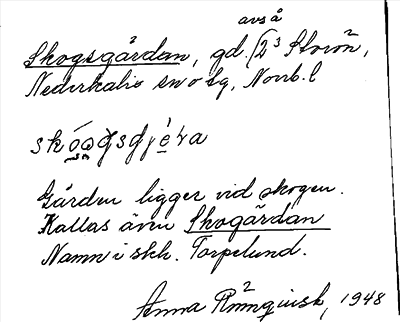 avså
Skogsgårdan, gd. (2³ Storön,
Nederkalix sn o tg, Norrb. l
Gården ligger vid skogen.
Kallas även Skogårdan
Namn i skh. Torpelund.
Anna Rönnquist, 1948